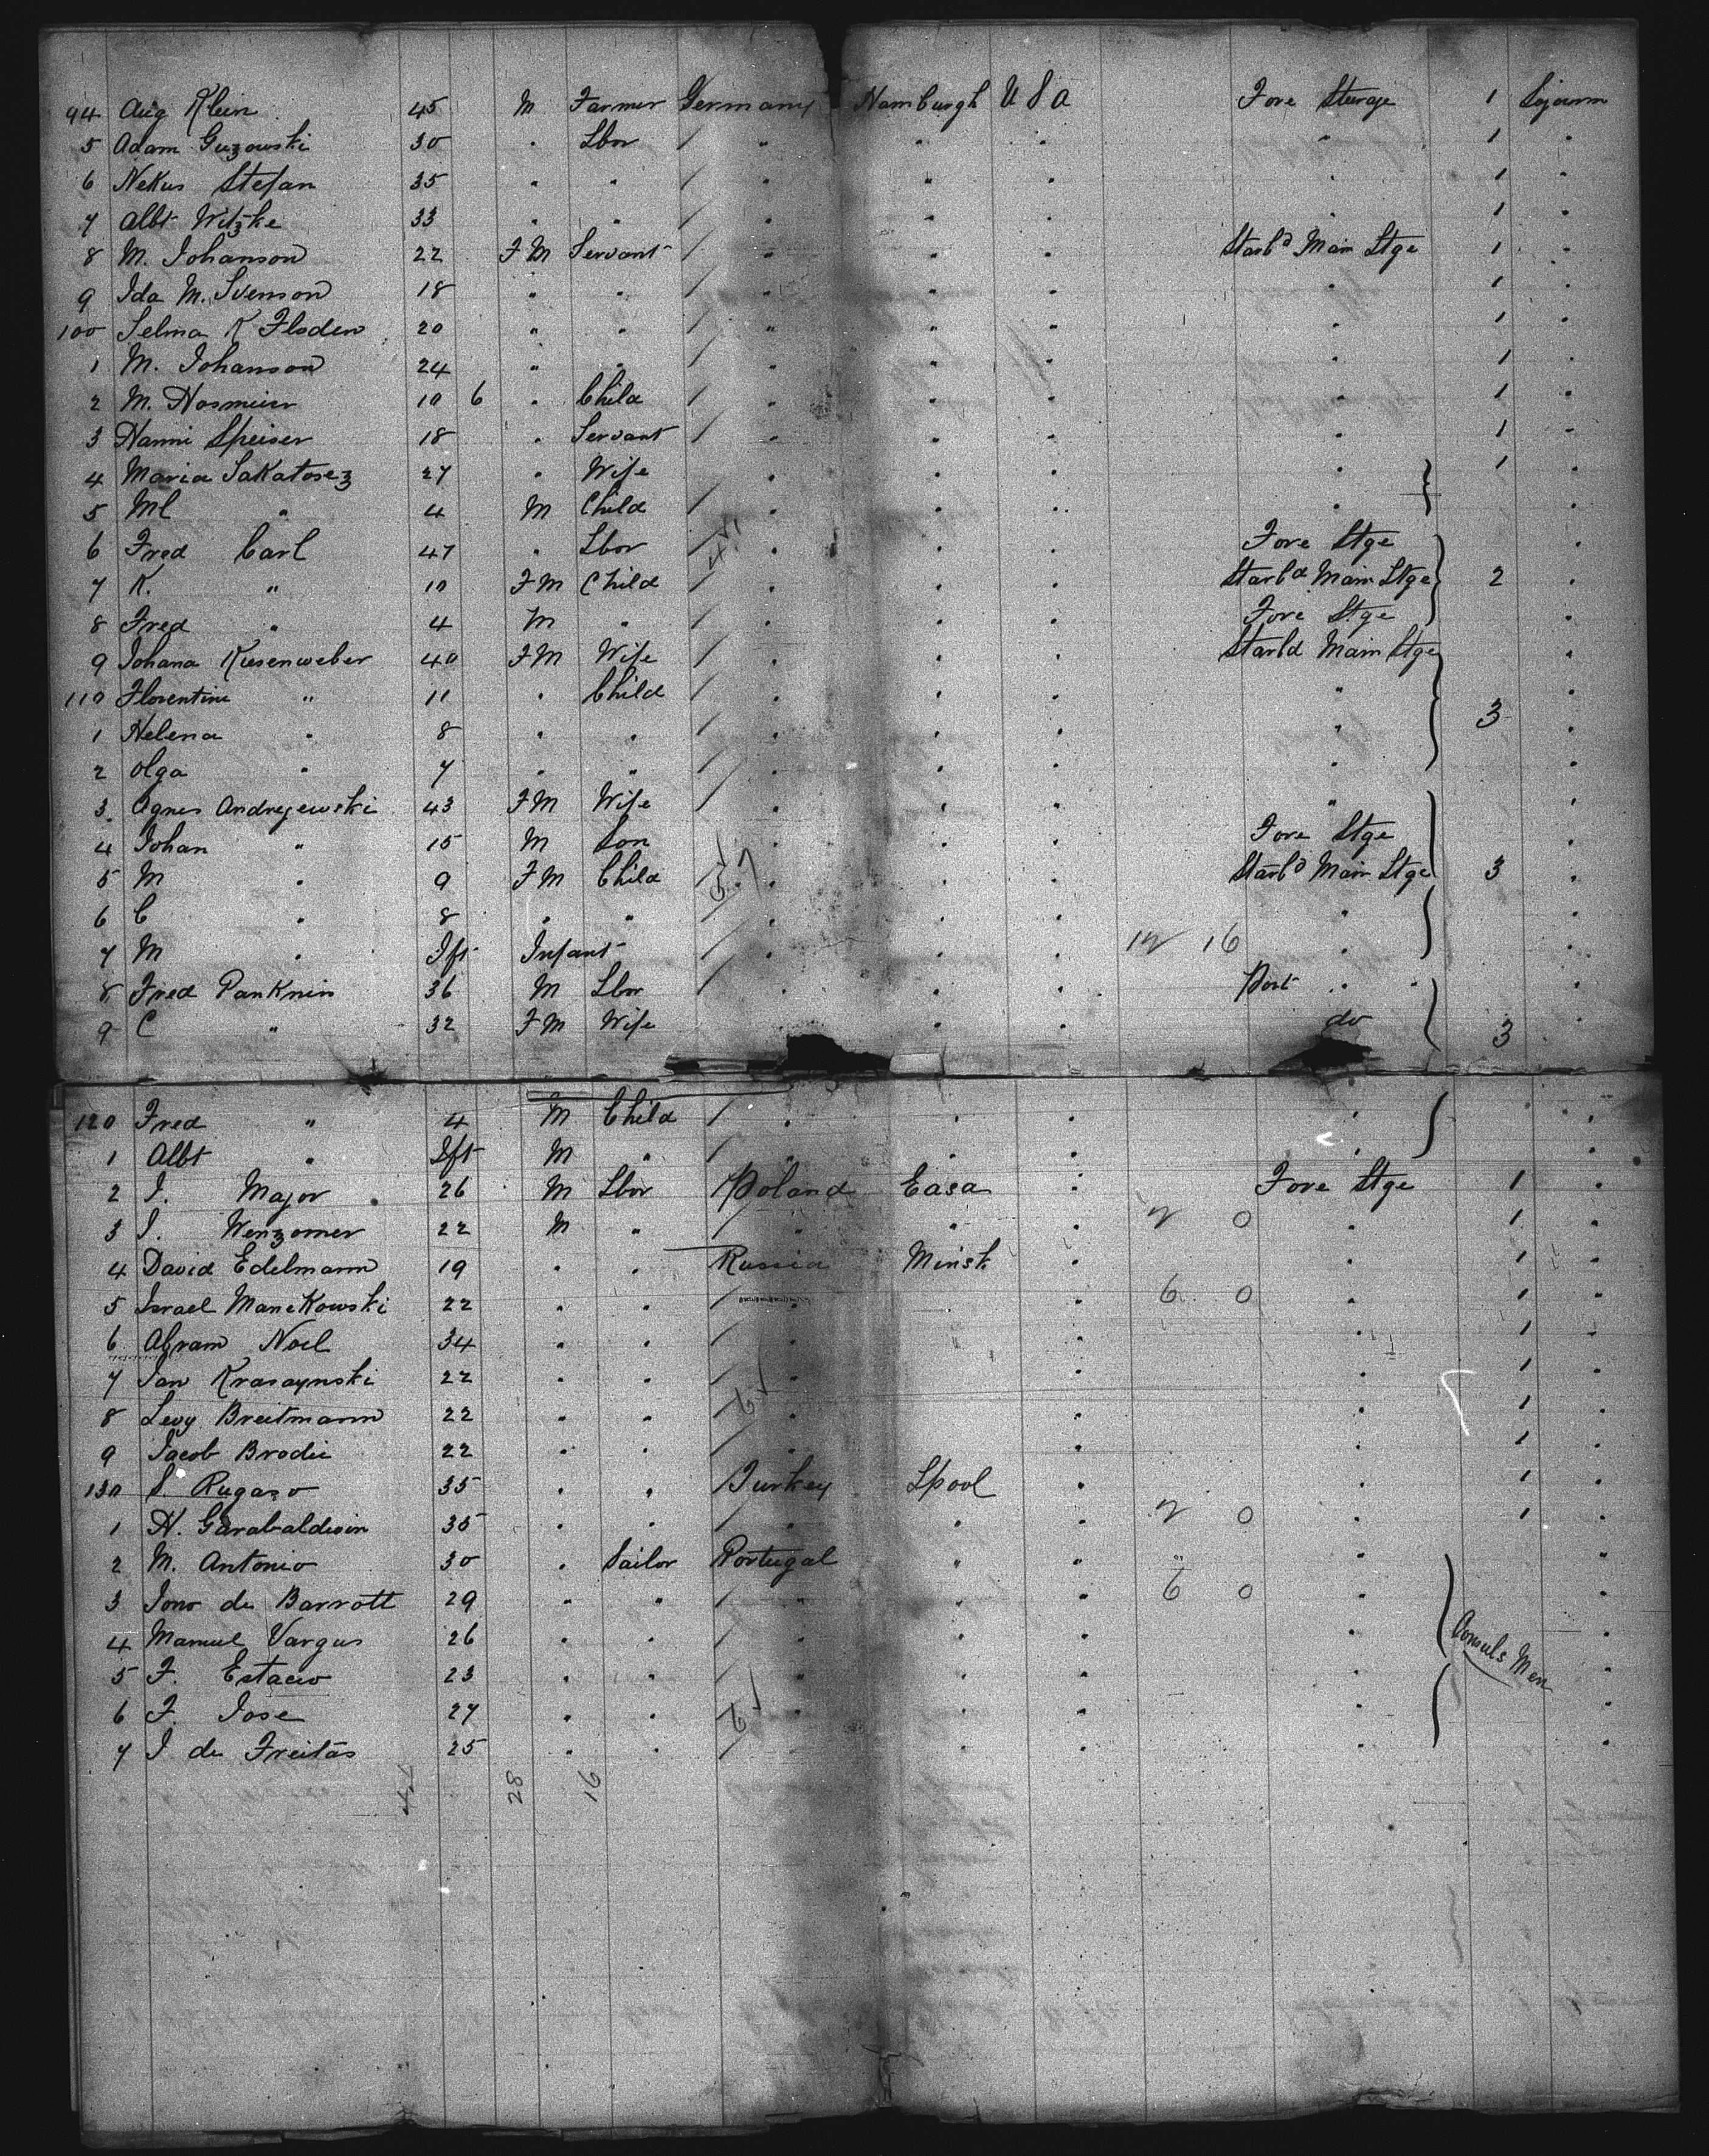 94 Aug Klein 45 M Farmer Germany Hamburgh U S A Fore Sterage 1 Sojourn
5 Adam Guzowski 30 " Lbor / " " " " 1 "
6 Nekus Stefan 35 " " / " " " " 1 "
7 Albt Witzke 33 " " / " " " " 1 "
8 M. Johanson 22 F M Servant / " " " Starbd Main Stge 1 "
9 Ida M. Svenson 18 " " / " " " " 1 "
100 Selma K Floden 20 " " / " " " " 1 "
1 M. Johanson 24 " " / " " " " 1 "
2 M. Hosmeier 10 6 " Child / " " " " 1 "
3 Hanni Speiser 18 " Servant / " " " " 1 "
4 Maria Sakatosez 27 " Wife " " " " 1 "
5 Ml " 4 M Child / " " " " "
6 Fred Carl 47 " Lbor / " " " Fore Stge "
7 K. " 10 F M Child / " " " Starbd Main Stge 2 "
8 Fred " 4 M " / " " " Fore Stge "
9 Johana Kusenweber 40 F M Wife / " " " Starbd Main Stge "
110 Florentine " 11 " Child / " " " " "
1 Helena " 8 " " / " " " " 3 "
2 Olga " 7 " " / " " " " "
3 Agnes Andrejewski 43 F M Wife / " " " " "
4 Johan " 15 M Son " " " Fore Stge "
5 M " 9 F M Child / " " " Starbd Main Stge 3 "
6 C " 8 " " / " " " " "
7 M " Ift Infant / " " " 12 16 " "
8 Fred Panknin 36 M Lbor / " " " Port " " "
9 C " 32 F M Wife " " do 3 "
120 Fred " 4 M Child / " " " " "
1 Albt " Ift M " / " " " " "
2 J. Major 26 M Lbor / Poland Easa " Fore Stge 1 "
3 J. Wenzomer 22 M " / " " " 2 0 " 1 "
4 David Edelmann 19 " " Russia Minsk " " 1 "
5 Israel Manekowski 22 " " / " " 6 0 " 1 "
6 Abram Noel 34 " " / " " " " 1 "
7 Jan Krasaynski 22 " " / " " " 1 "
8 Levy Breitmann 22 " " / " " " 1 "
9 Jacob Brodie 22 " " / " " " 1 "
130 S Rugaso 35 " " Turkey Lpool " " 1 "
1 H. Garabaldwin 35 " " / " " " 2 0 " 1 "
2 M. Antonio 30 " Sailor Portugal " " " " "
3 Jono de Barrott 29 " " / " " " 6 0 " "
4 Manuel Vargus 26 " " / " " " " Consuls Men "
5 F. Estacio 23 " " / " " " " "
6 F. Jose 27 " " / " " " " "
7 J de Freitas 25 " " / " " " " "
28 16